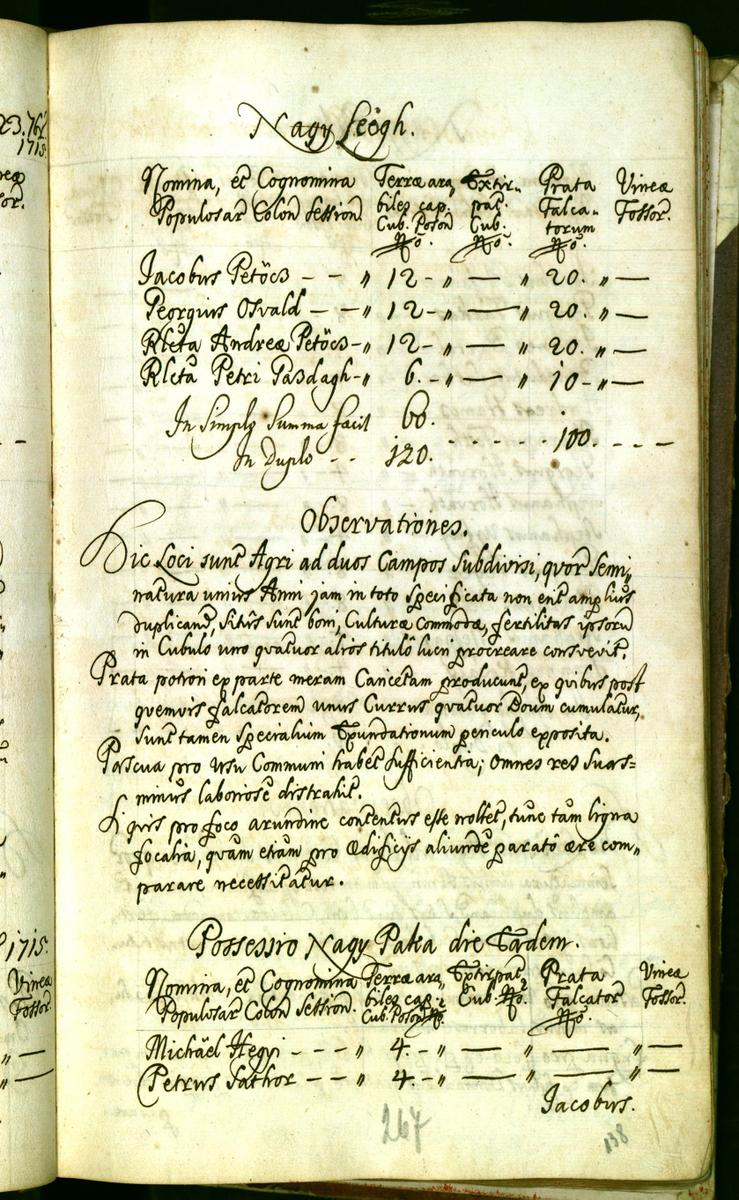 Nagy Leögh.
Nomina, et Cognomina Terræ ara„ Extir„ Prata Vineæ
Populosar Colon Session biles cap. pat. Falca„ Fossor.
Cub. Poson Cub. torum
No. No. No.
Jacobus Petöcs – – „ 12 – „ — „ 20. „ —
Georgius Osvald – – „ 12 – „ — „ 20. „ —
Rlcta Andreæ Petöcs – „ 12 – „ — „ 20. „ —
Rlcta Petri Pasdagh – „ 6. – „ — „ 10 – „ —
In Simplo Summa facit 60.
100.
In Duplo – – 120.
Observationes.
Hic Loci sunt Agri ad duos Campos subdivisi, quor Semi„
natura unius Anni jam in toto specificata non erit amplius
duplicand, Sitûs sunt boni, Culturæ Commodæ, fertilitas ipsorū
in Cubulo uno quatuor alios titulô lucri procreare consvevit.
Prata potiori ex parte meram Caricetam producunt, ex quibus post
quemvis falcatorem unus Currus quatuor Boum cumulatur,
sunt tamen specialium Exundationum periculo exposita.
Pascua pro Usu Communi habet sufficientia; Omnes res suas
minus laboriosè distrahit.
Si quis pro foco arundine contentus esse nollet, tunc tàm ligna
focalia, quàm etiam pro Ædificÿs aliunde paratô ære com„
parare necessitatur.
Possessio Nagy Paka die Eadem.
Nomina, et Cognomina Terræ ara„ Extirpat Prata Vineæ
Populosar Colon Session. biles cap. Cub. No. Falcator Fossor.
Cub. Poson No. No.
Michäel Hegyi – – – „ 4. – „ — „ — „ —
Petrus Sathor – – „ 4. – „ — „ — „ —
Jacobus.
267
138
23.762
1715.
1715.
Vineæ
Fossor.